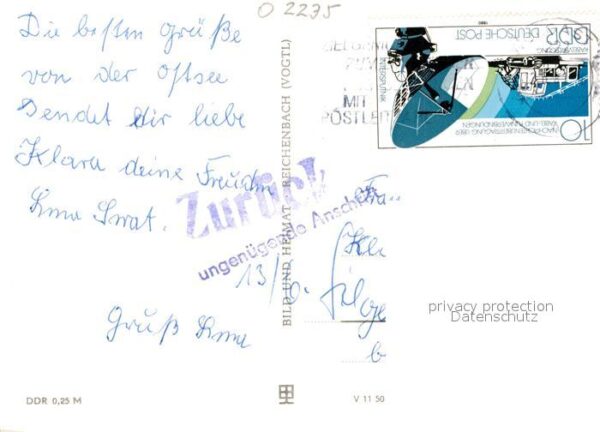 O 2235
Die besten Grüße
von der Ostsee
Sendet dir liebe
Klara deine Freundin
Gruß
DDR 0,25 M
BILD UND HEIMAT REICHENBACH (VOGTL)
V 11 50
Zurück
ungenügende Anschrift
13/
Frau
MIT
PÖSTLER
DDR
DEUTSCHE POST
INTERSPUTNIK
NACHRICHTENÜBERTRAGUNG ÜBER
KABEL- UND FUNKVERBINDUNGEN
10
privacy protection
Datenschutz